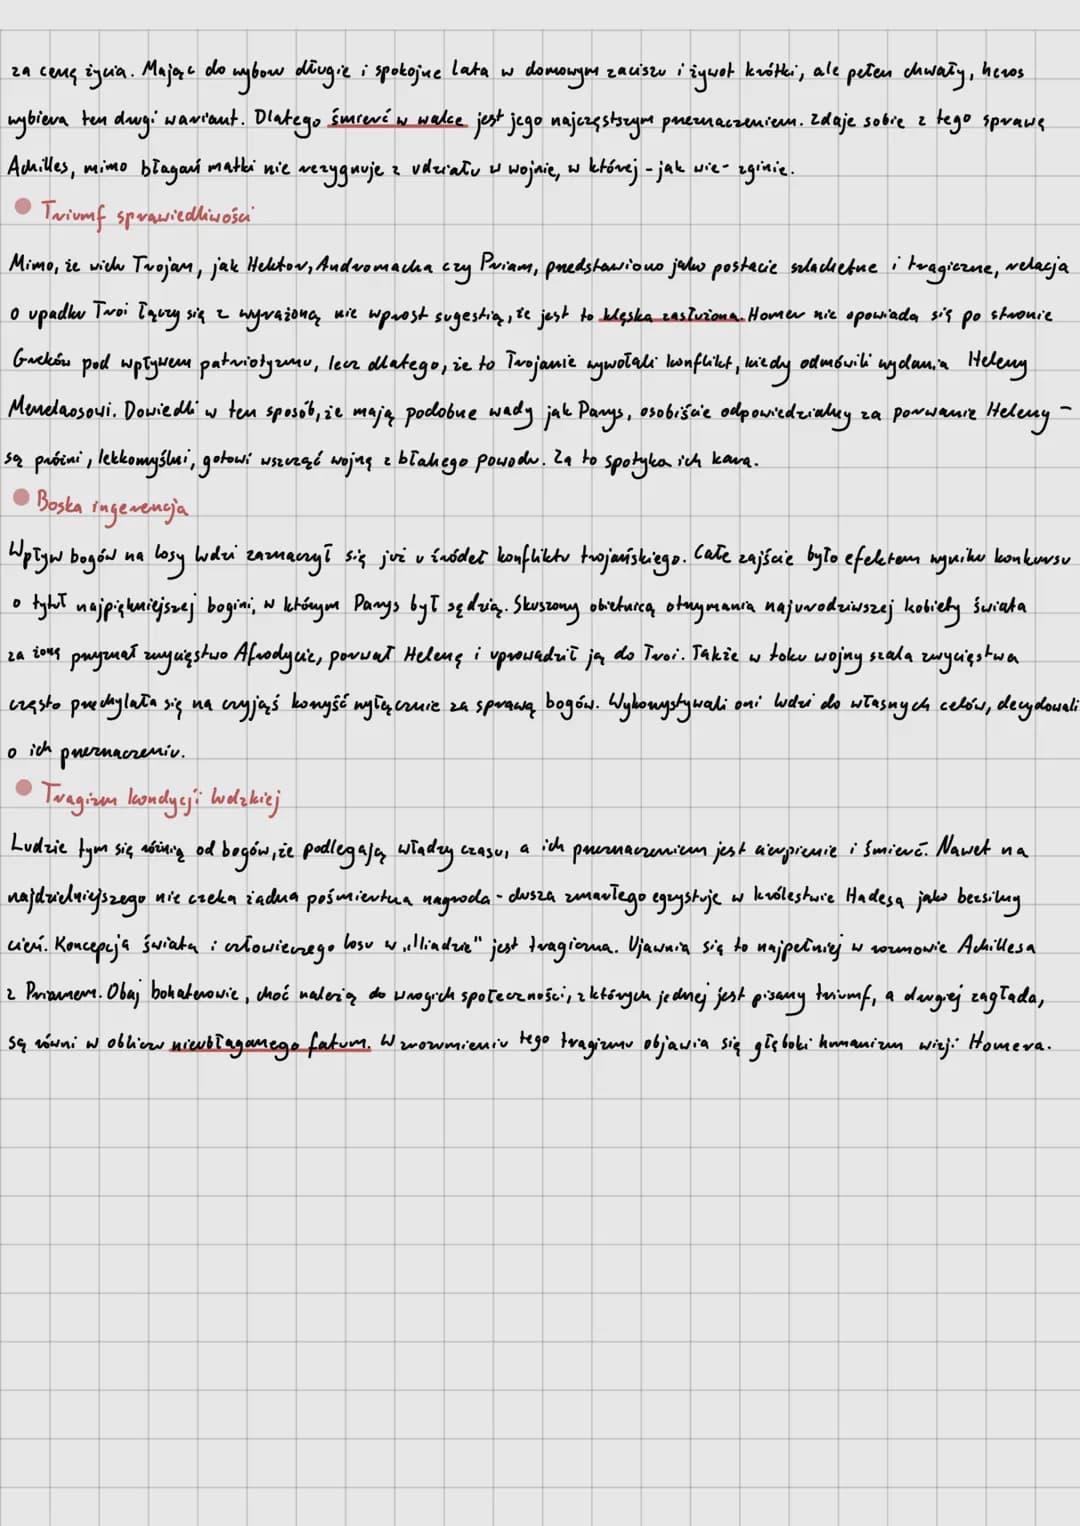 za cenę życia. Mając do wyboru długie i spokojne lata w domowym zaciszu i żywot krótki, ale pełen chwały, heros
wybiera ten drugi wariant. Dlatego śmierć w walce jest jego najczęstszym przeznaczeniem. Zdaje sobie z tego sprawę
Achilles, mimo błagań matki nie rezygnuje z udziału w wojnie, w której - jak wie - zginie.
Triumf sprawiedliwości
Mimo, że wielu Trojan, jak Hektor, Andromacha czy Priam, przedstawiono jako postacie szlachetne i tragiczne, relacja
o upadku Troi łączy się z wyrażoną nie wprost sugestią, że jest to klęska zasłużona. Homer nie opowiada się po stronie
Greków pod wpływem patriotyzmu, lecz dlatego, że to Trojanie wywołali konflikt, kiedy odmówili wydania Heleny
Menelaosowi. Dowiedli w ten sposób, że mają podobne wady jak Parys, osobiście odpowiedzialny za porwanie Heleny -
są próżni, lekkomyślni, gotowi wszcząć wojnę z błahego powodu. Za to spotyka ich kara.
Boska ingerencja
Wpływ bogów na losy ludzi zaznaczył się już u źródeł konfliktu trojańskiego. Całe zajście było efektem wyniku konkursu
o tytuł najpiękniejszej bogini, w którym Parys był sędzią. Skuszony obietnicą otrzymania najurodziwszej kobiety świata
za żonę przyznał zwycięstwo Afrodycie, porwał Helenę i uprowadził ją do Troi. Także w toku wojny szala zwycięstwa
często przechylała się na czyjąś korzyść wyłącznie za sprawą bogów. Wykorzystywali oni ludzi do własnych celów, decydowali
o ich przeznaczeniu.
Tragizm kondycji ludzkiej
Ludzie tym się różnią od bogów, że podlegają władzy czasu, a ich przeznaczeniem jest cierpienie i śmierć. Nawet na
najdzielniejszego nie czeka żadna pośmiertna nagroda - dusza zmarłego egzystuje w królestwie Hadesa jako bezsilny
cień. Koncepcja świata i człowieczego losu w „Iliadzie" jest tragiczna. Ujawnia się to najpełniej w rozmowie Achillesa
z Priamem. Obaj bohaterowie, choć należą do wrogich społeczności, z których jednej jest pisany triumf, a drugiej zagłada,
są równi w obliczu nieubłaganego fatum. W zrozumieniu tego tragizmu objawia się głęboki humanizm wizji Homera.